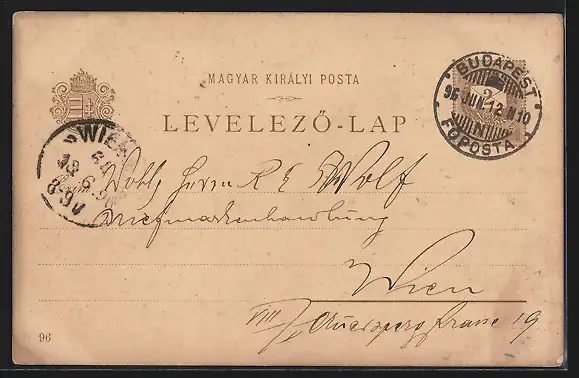 MAGYAR KIRÁLYI POSTA
LEVELEZŐ-LAP
BUDAPEST
96 JUN. 12 N10
FŐPOSTA
2
WIEN
Wolf
Briefmarkenhandlung
Wien
VIII/ Auerspergstrasse 19
96